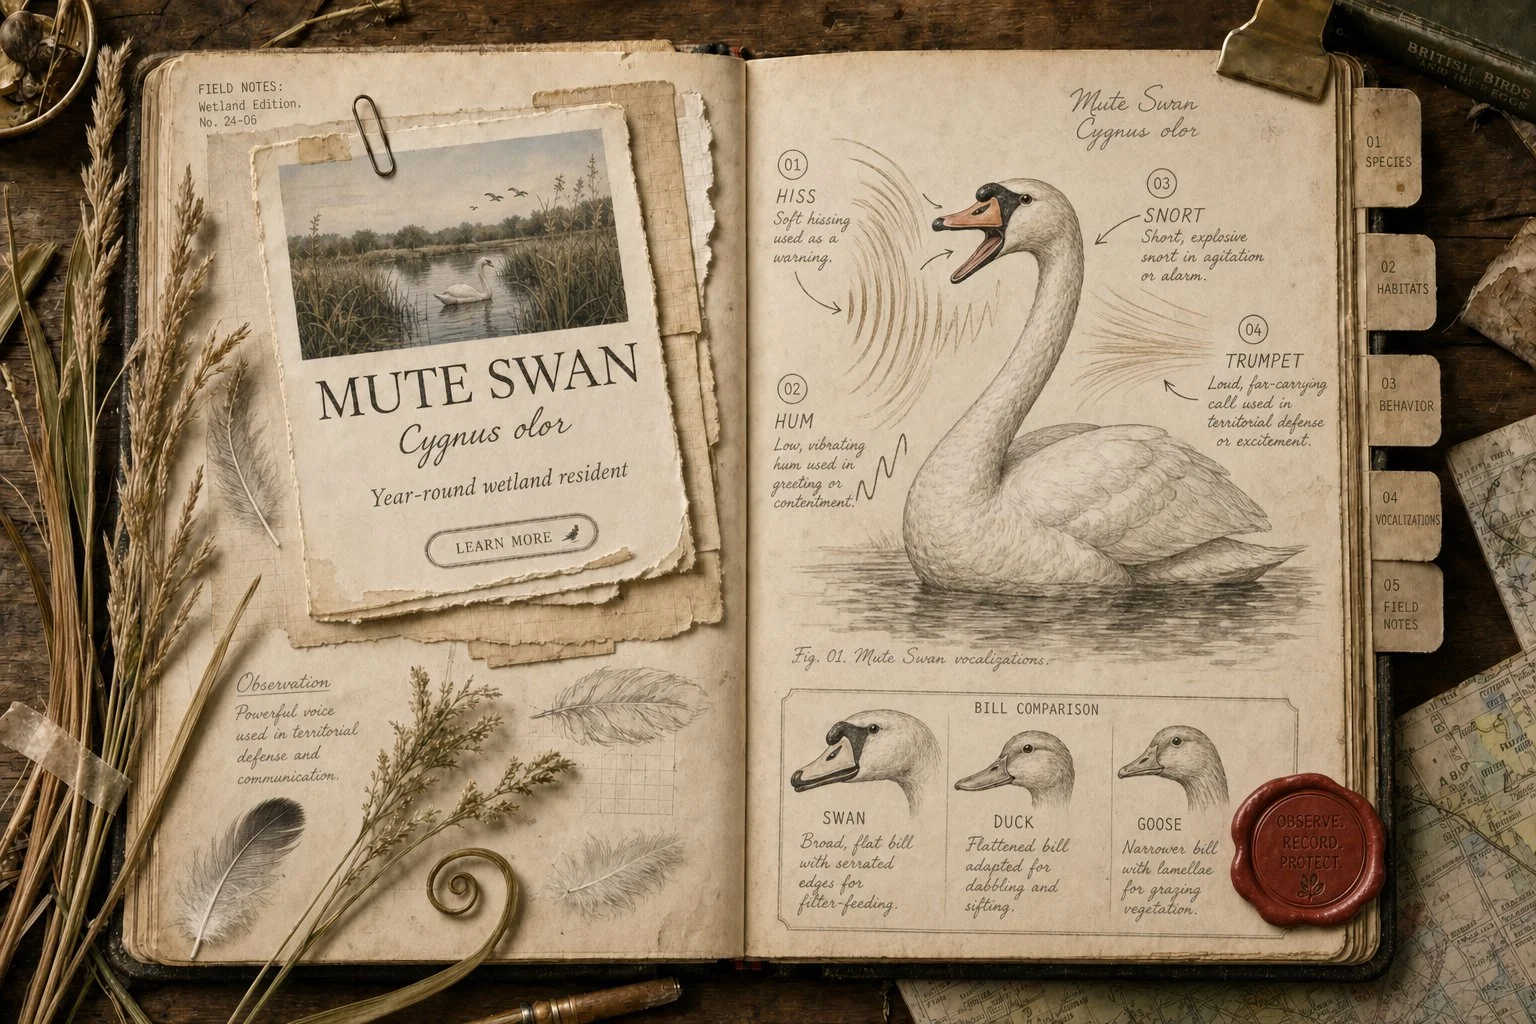 FIELD NOTES:
Wetland Edition.
No. 24-06
MUTE SWAN
Cygnus olor
Year-round wetland resident
LEARN MORE
Observation
Powerful voice
used in territorial
defense and
communication.
Mute Swan
Cygnus olor
01
HISS
Soft hissing
used as a
warning.
02
HUM
Low, vibrating
hum used in
greeting or
contentment.
03
SNORT
Short, explosive
snort in agitation
or alarm.
04
TRUMPET
Loud, far-carrying
call used in
territorial defense
or excitement.
Fig. 01. Mute Swan vocalizations.
BILL COMPARISON
SWAN
Broad, flat bill
with serrated
edges for
filter-feeding.
DUCK
Flattened bill
adapted for
dabbling and
sifting.
GOOSE
Narrower bill
with lamellae
for grazing
vegetation.
OBSERVE.
RECORD.
PROTECT.
01
SPECIES
02
HABITATS
03
BEHAVIOR
04
VOCALIZATIONS
05
FIELD
NOTES
BRITISH BIRDS
AND THEIR EGGS